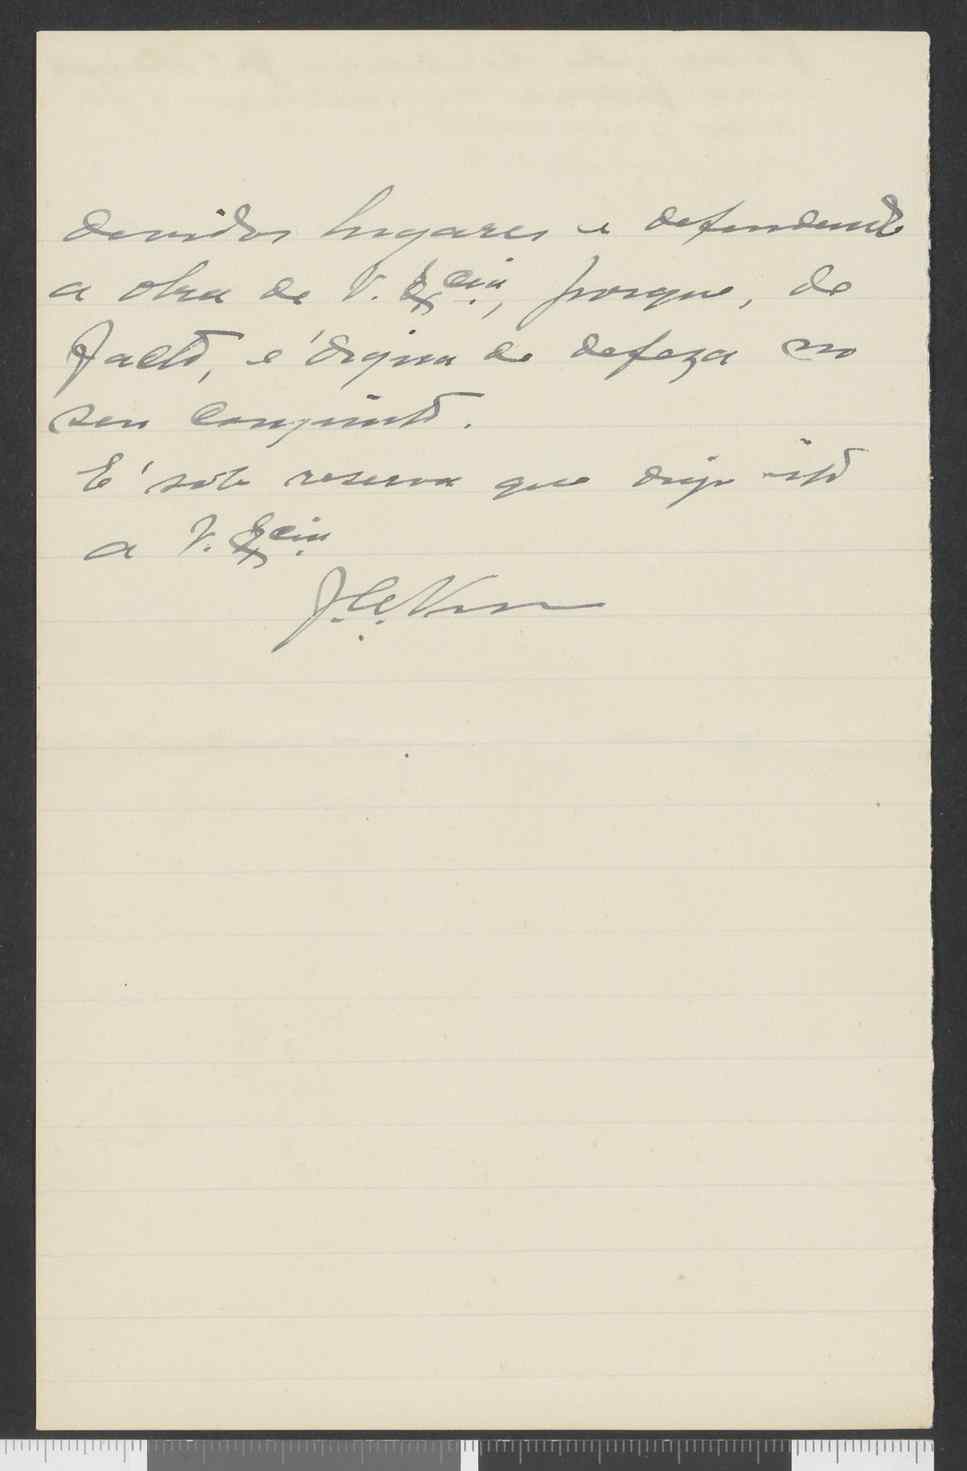 devidos lugares e defendendo
a obra de V. Ex.cia, porque, de
facto, é digna de defeza no
seu conjunto.
É sob reserva que digo isto
a V. Ex.cia
J. C.